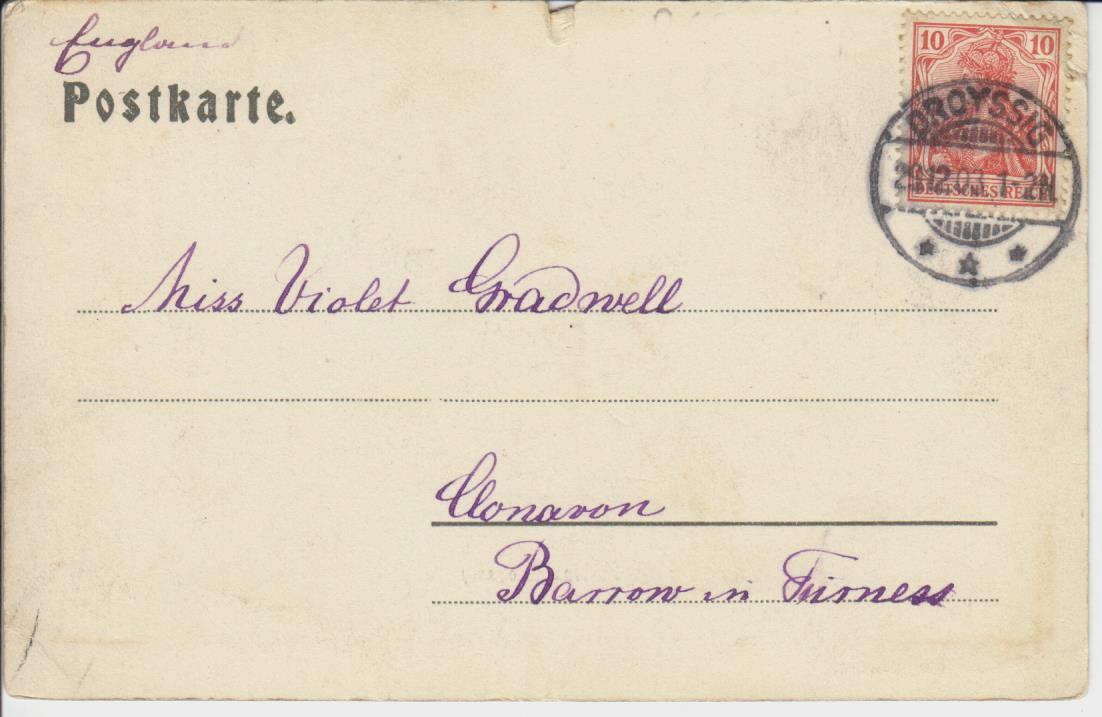 England
Postkarte.
10 10
DROYSSIG
29.12.03. 1-2N.
DEUTSCHES REICH
Miss Violet Gradwell
Clonavon
Barrow in Furness